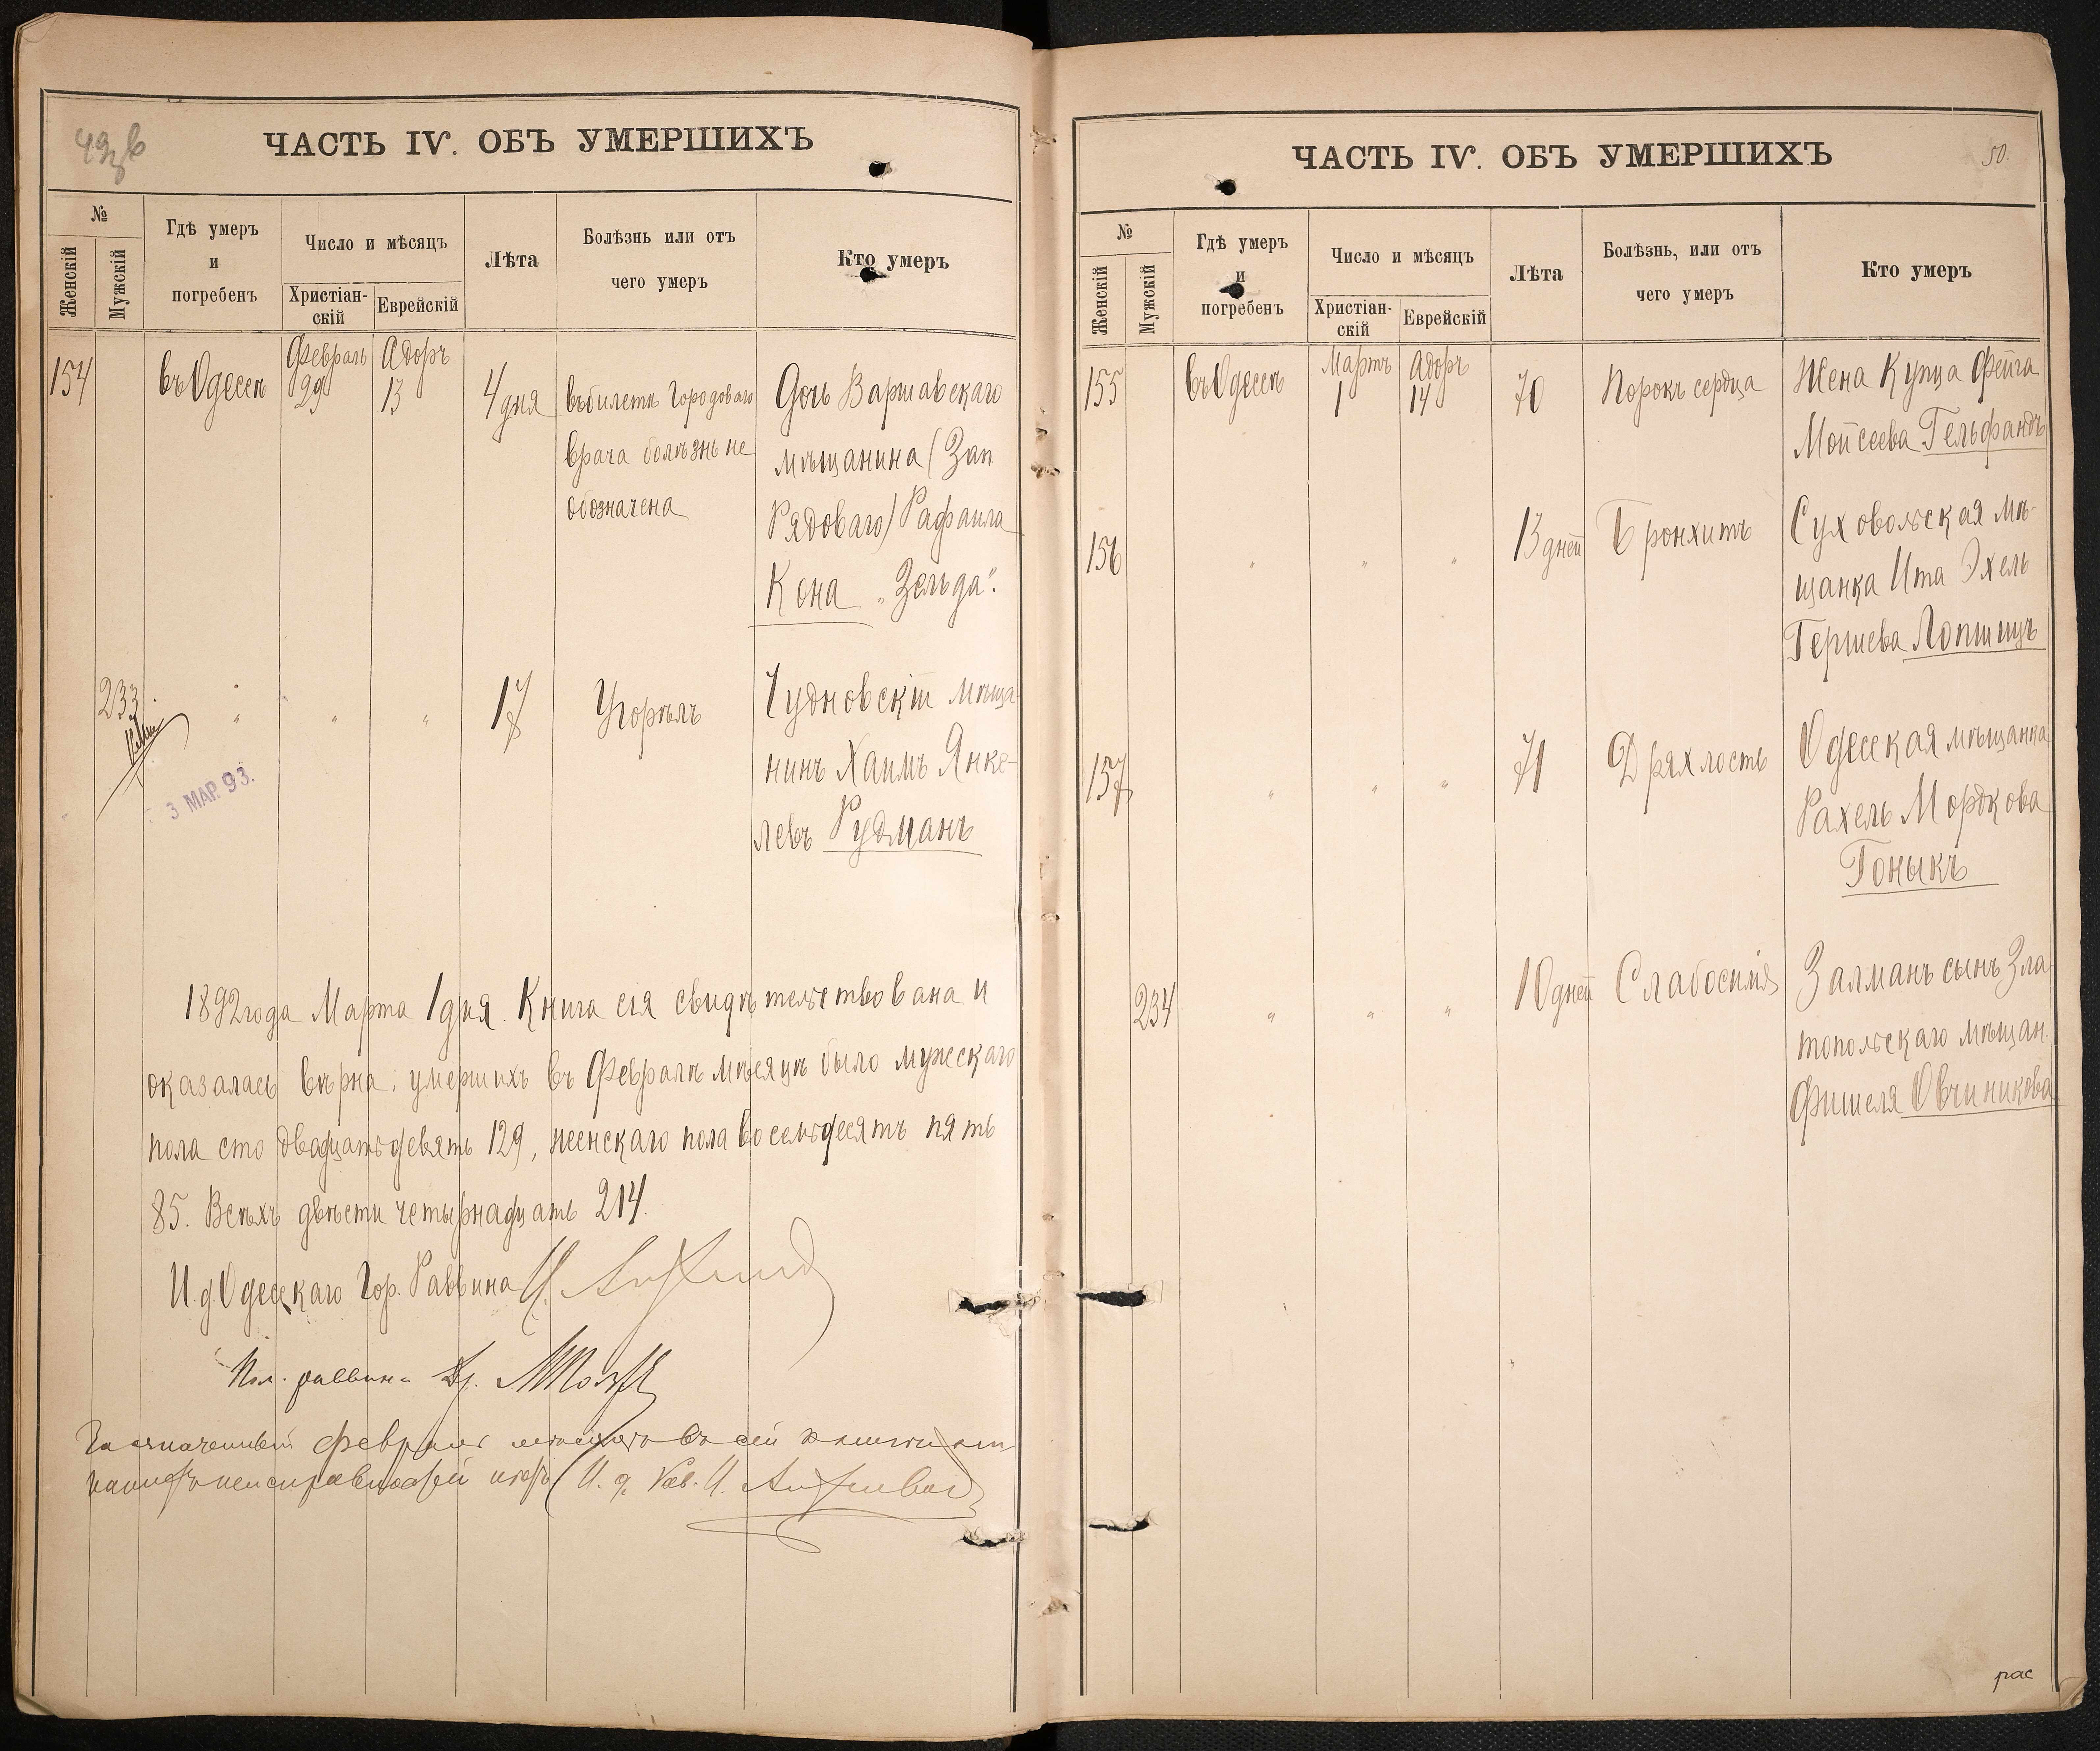 ЧАСТЬ IV. ОБЪ УМЕРШИХЪ
№
Женскій
Мужскій
Гдѣ умеръ
и
погребенъ
Число и мѣсяцъ
Христіан-
скій
Еврейскій
Лѣта
Болѣзнь или отъ
чего умеръ
Кто умеръ
154
въ Одессѣ
Февраль
29
Адоръ
13
4 дня
въ билетѣ Городоваго
врача болѣзнь не
обозначена
Дочь Варшавскаго
мѣщанина (Зап.
Рядоваго) Рафаила
Кона „Зельда".
233
"
"
"
17
Угорѣлъ
Чудновскій мѣща-
нинъ Хаимъ Янке-
левъ Рудманъ
3 МАР. 93.
1892 года Марта 1 дня. Книга сія свидѣтельствована и
оказалась вѣрна; умершихъ въ Февралѣ мѣсяцѣ было мужескаго
пола сто двадцать девять 129, женскаго пола восемьдесятъ пять
85. Всѣхъ двѣсти четырнадцать 214.
И. д. Одесскаго Гор. Раввина
Пом. раввина Др.
ЧАСТЬ IV. ОБЪ УМЕРШИХЪ
50.
№
Женскій
Мужскій
Гдѣ умеръ
и
погребенъ
Число и мѣсяцъ
Христіан-
скій
Еврейскій
Лѣта
Болѣзнь, или отъ
чего умеръ
Кто умеръ
155
въ Одессѣ
Мартъ
1
Адоръ
14
70
Порокъ сердца
Жена Купца Фейга
Мойсеева Гельфандъ
156
"
"
"
13 дней
Бронхитъ
Суховольская мѣ-
щанка Ита Эхель
Гершева Лопшицъ
157
"
"
"
71
Дряхлость
Одесская мѣщанка
Рахель Мордкова
Гоныкъ
234
"
"
"
10 дней
Слабосилія
Залманъ сынъ Зла-
топольскаго мѣщан.
Фишеля Овчиникова
рас